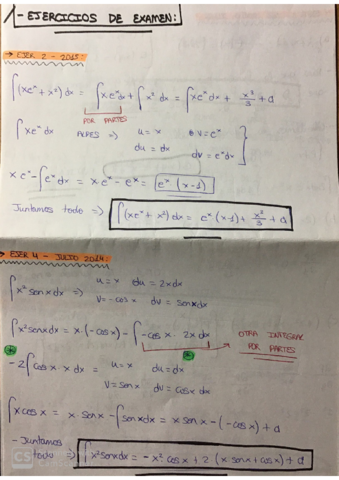 1- EJERCICIOS DE EXAMEN:
→ EJER 2 - 2015:
∫(xeˣ + x²) dx = ∫xeˣdx + ∫x² dx = ∫xeˣ dx + x³/3 + C
POR PARTES
∫xeˣ dx ⇒ u = x v = eˣ
du = dx dv = eˣdx
xeˣ - ∫eˣdx = xeˣ - eˣ = eˣ (x-1)
Juntamos todo ⇒ ∫(xeˣ + x²) dx = eˣ (x-1) + x³/3 + C
→ EJER 4 - JULIO 2014:
∫x² senx dx ⇒ u = x du = 2x dx
v = -cosx dv = senx dx
∫x² senx dx = x·(-cosx) - ∫-cosx · 2x dx
OTRA INTEGRAL
POR PARTES
-2∫cosx · x dx = u = x du = dx
v = senx dv = cosx dx
∫xcosx = x senx - ∫senx dx = x senx - (-cosx) + C
- Juntamos
todo ⇒ ∫x² senx dx = -x² cosx + 2 (x senx + cosx) + C
CS